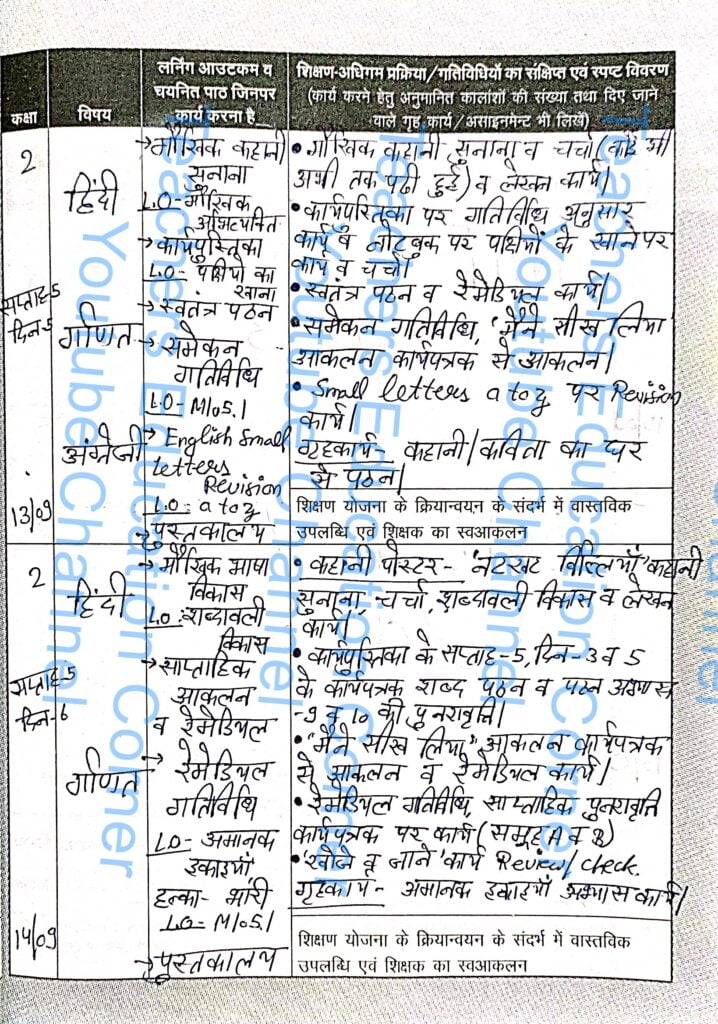 कक्षा
विषय
लर्निंग आउटकम व
चयनित पाठ जिनपर
कार्य करना है
शिक्षण-अधिगम प्रक्रिया/गतिविधियों का संक्षिप्त एवं स्पष्ट विवरण
(कार्य करने हेतु अनुमानित कालांशों की संख्या तथा दिए जाने
वाले गृह कार्य/असाइनमेंट भी लिखें)
2
सप्ताह-5
दिन-5
13/09
हिंदी
गणित
अंग्रेजी
→मौखिक कहानी
सुनाना
L.O-मौखिक
→कार्यपुस्तिका
L.O- पक्षियों का
खाना
→स्वतंत्र पठन
→ समेकन
गतिविधि
L.O- M105.1
→ English Small
letters
Revision
L.O: a to z
→पुस्तकालय
• मौखिक कहानी सुनाना व चर्चा (कोई भी
अभी तक पढ़ी हुई) व लेखन कार्य।
• कार्यपुस्तिका पर गतिविधि अनुसार
कार्य व नोटबुक पर पक्षियों के खाने पर
कार्य व चर्चा।
• स्वतंत्र पठन व रेमेडियल कार्य।
• समेकन गतिविधि, 'मैंने सीख लिया'
आकलन कार्यपत्रक से आकलन।
• Small letters a to z पर Revision
कार्य।
गृहकार्य- कहानी/कविता का घर
से पठन।
शिक्षण योजना के क्रियान्वयन के संदर्भ में वास्तविक
उपलब्धि एवं शिक्षक का स्वआकलन
2
सप्ताह-5
दिन-6
14/09
हिंदी
गणित
→ मौखिक भाषा
विकास
L.O: शब्दावली
विकास
→साप्ताहिक
आकलन
व रेमेडियल
→ रेमेडियल
गतिविधि
L.O- अमानक
इकाइयाँ
हल्का- भारी
L.O- M105.1
→पुस्तकालय
• कहानी पोस्टर- 'नटखट बिल्लियाँ' कहानी
सुनाना, चर्चा, शब्दावली विकास व लेखन
कार्य।
• कार्यपुस्तिका के सप्ताह-5, दिन-3 व 5
के कार्यपत्रक शब्द पठन व पठन अभ्यास
-9 व 10 की पुनरावृत्ति।
• "मैंने सीख लिया" आकलन कार्यपत्रक
से आकलन व रेमेडियल कार्य।
• रेमेडियल गतिविधि, साप्ताहिक पुनरावृत्ति
कार्यपत्रक पर कार्य (समूह A व B)
कार्य Review/check.
गृहकार्य- अमानक इकाइयाँ अभ्यास कार्य।
शिक्षण योजना के क्रियान्वयन के संदर्भ में वास्तविक
उपलब्धि एवं शिक्षक का स्वआकलन
Teachers Education Corner
Youtube Channel
Teachers Education Corner
Youtube Channel
Teachers Education Corner
Youtube Channel